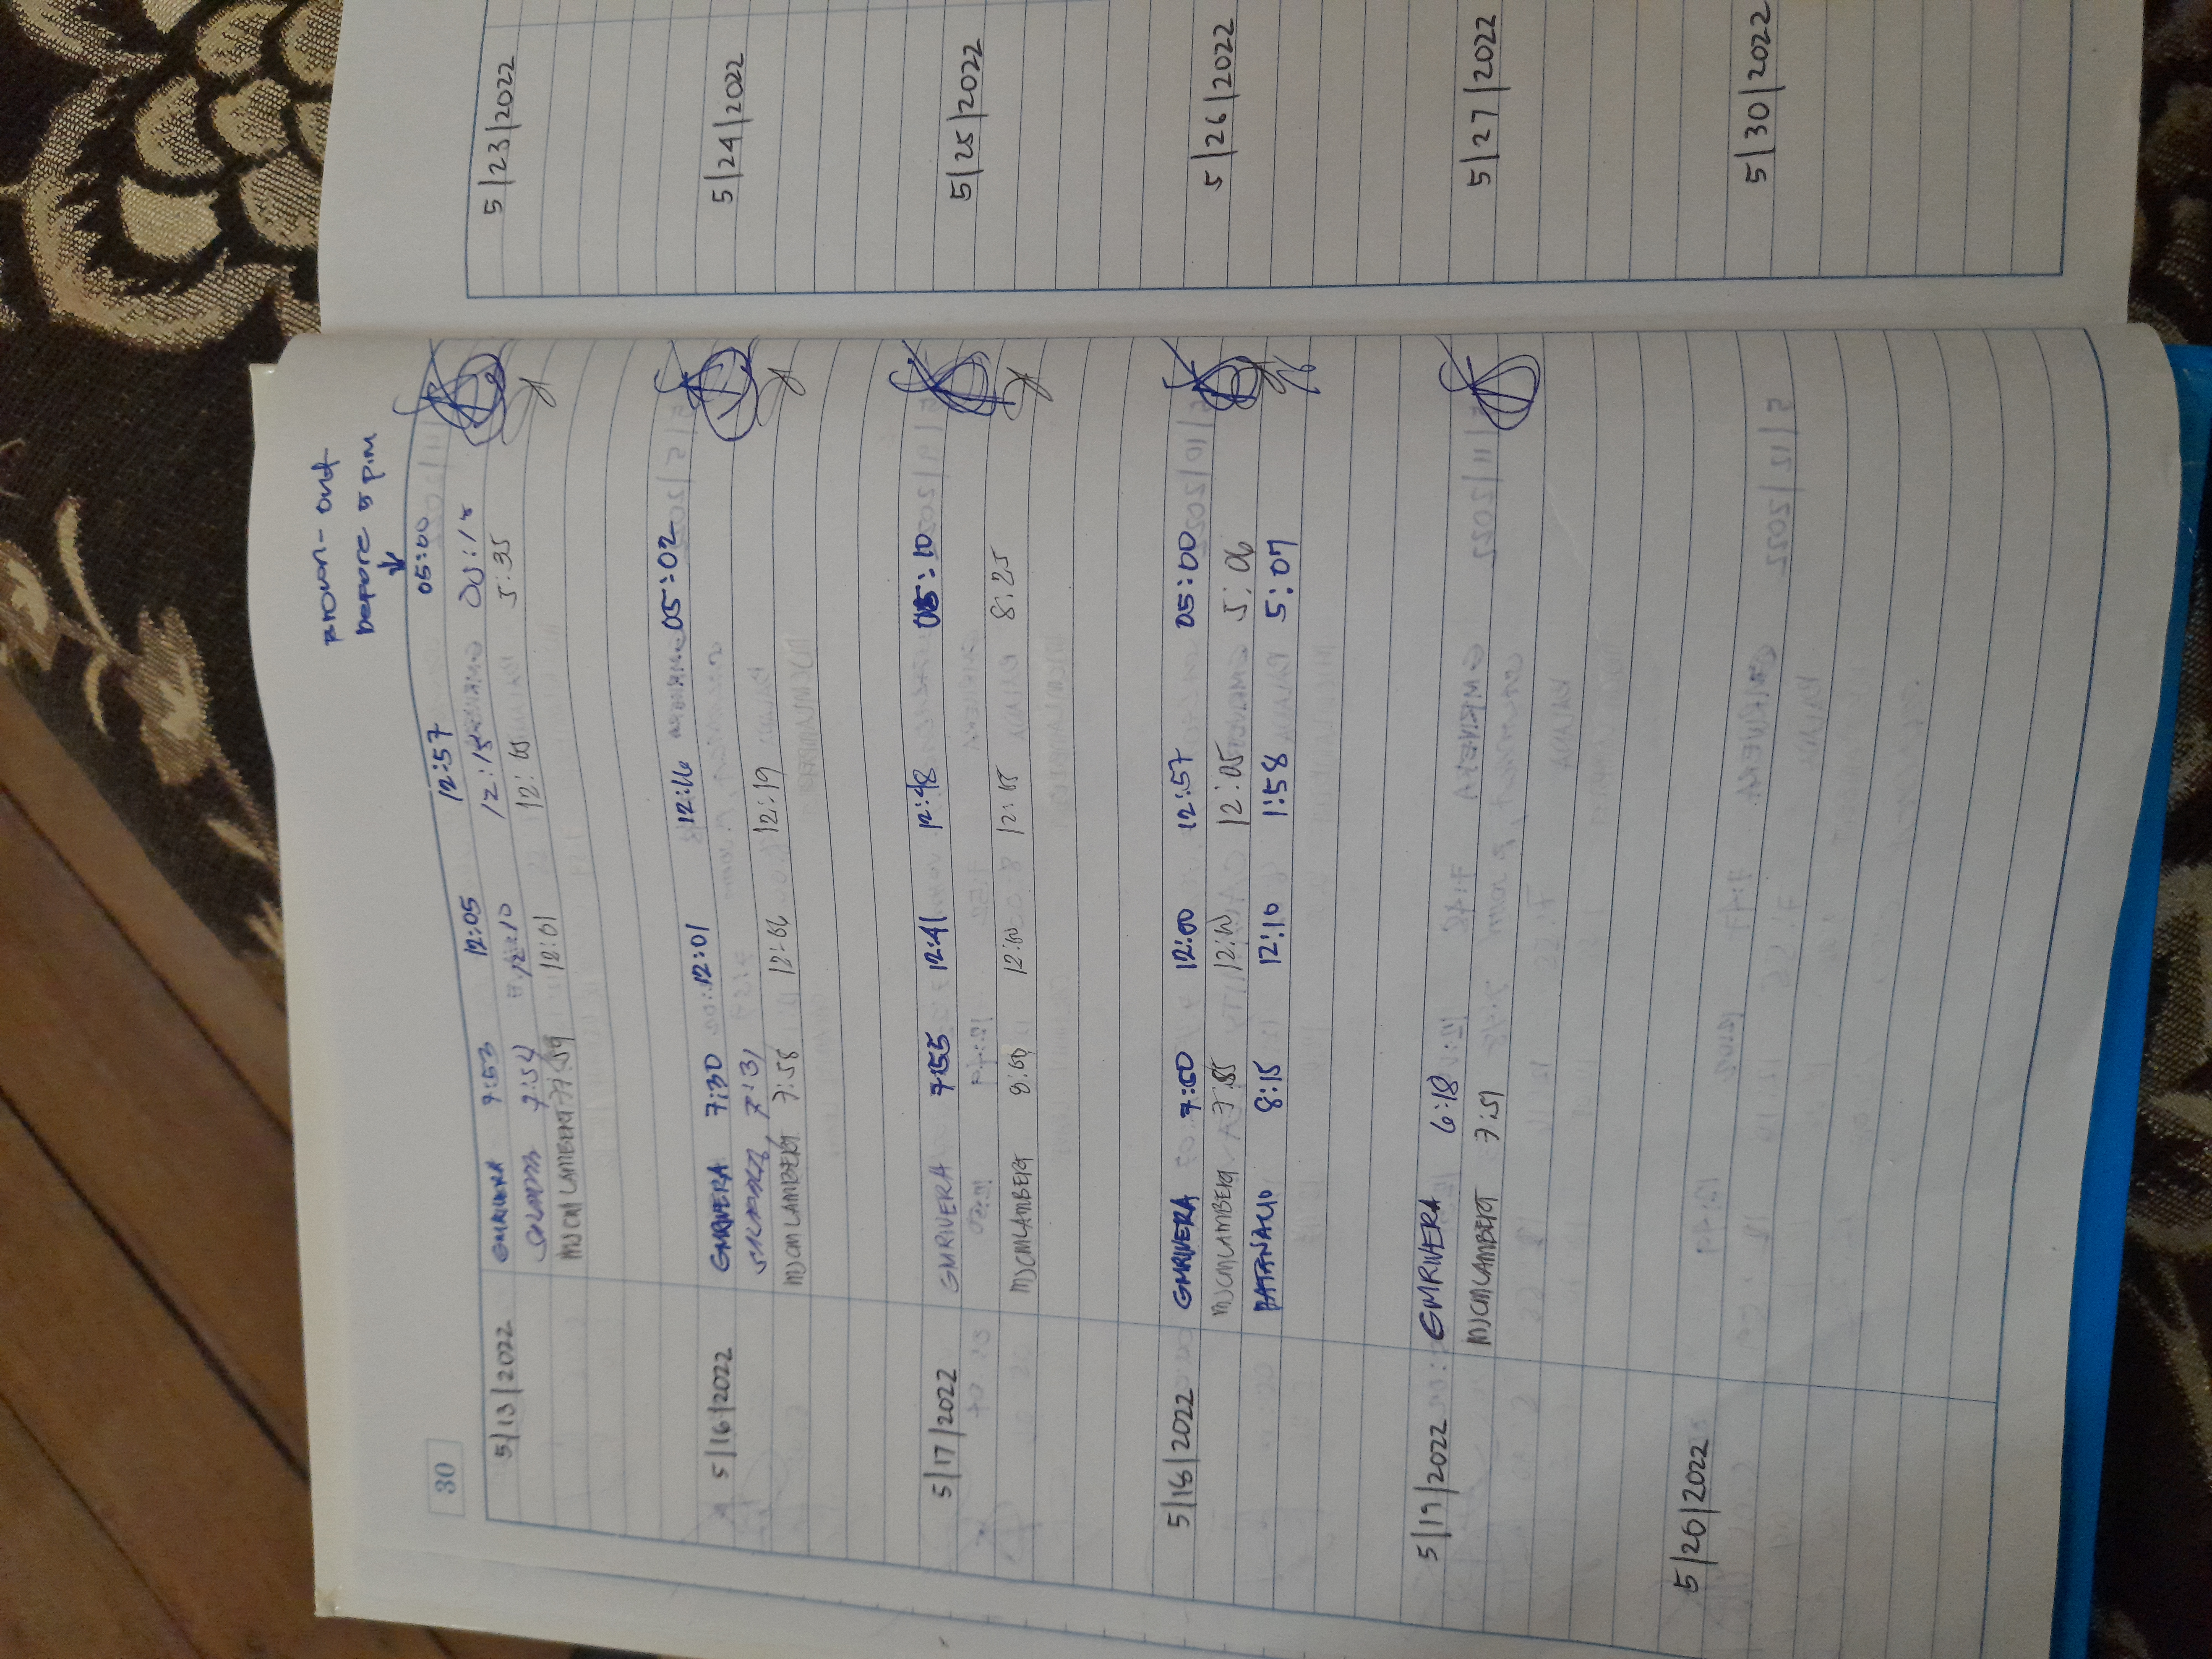 30
Brown-out
before 5 pm
5/13/2022 GMRIVERA 7:53 12:05 12:57 05:00
7:54 12:10
MJCMLAMBERT 7:59 12:01 5:35
5/16/2022 GMRIVERA 7:30 12:01 12:16 05:02
7:31
MJCMLAMBERT 7:58 12:19
5/17/2022 GMRIVERA 7:55 12:41 12:48 05:10
MJCMLAMBERT 8:00 12:00 12:05 8:25
5/18/2022 GMRIVERA 12:00 12:57 05:00
MJCMLAMBERT 12:00 12:05 5:06
8:15 12:10 1:58 5:07
5/19/2022 GMRIVERA 6:18
MJCMLAMBERT 7:51
5/20/2022
5/23/2022
5/24/2022
5/25/2022
5/26/2022
5/27/2022
5/30/2022